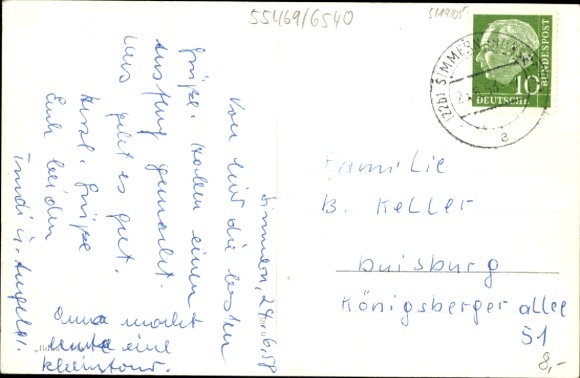 55469/6540
Simmern, 24.6.58
Von hier die besten
Grüße. Haben einen
Ausflug gemacht.
Uns geht es gut.
Herzl. Grüße
Euch beiden
Trudi u.
Oma macht
heute eine
Kleintour.
(22b) SIMMERN
a
10
DEUTSCHE
BUNDESPOST
Familie
B. Keller
Duisburg
Königsberger allee
51
8,-